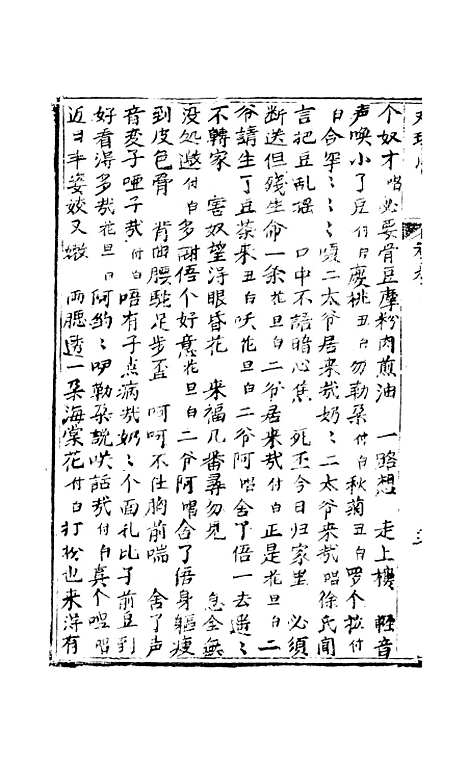 个奴才 唱 必要骨豆摩粉肉煎油 一路想 走上楼 轻音
声唤小了豆 付白 庆桃 丑白 勿勒朶 付白 秋菊 丑白 罗个 付
白 合罕〻〻 项二太爷居来哉奶〻二太爷来哉 唱 徐氏闻
言把豆乱摇 口中不語暗心焦 死丕今日归家里 必须
断送但残生命一条 花旦白 二爷居来哉 付白 正是 花旦白 二
爷請坐丫豆茶来 丑白 吙 花旦白 二爷阿 唱 舍了倍一去遥〻
不轉家 害奴望得眼昏花 来福几番尋勿見 息全無
没処 付白 多谢倍个好意 花旦白 二爷阿 唱 舍了倍身軀瘦
到皮包骨 背曲腰駝足步歪 呵呵不住胸前喘 舍了声
音变子哑子哉 付白 唔有子点病哉奶〻个面孔比子前豆到
好看得多哉 花旦白 阿約〻咿勒朶說唉話哉 付白 真个 唱
近日丰姿姣又嫩 兩腮透一朶海棠花 付白 打扮也来得有